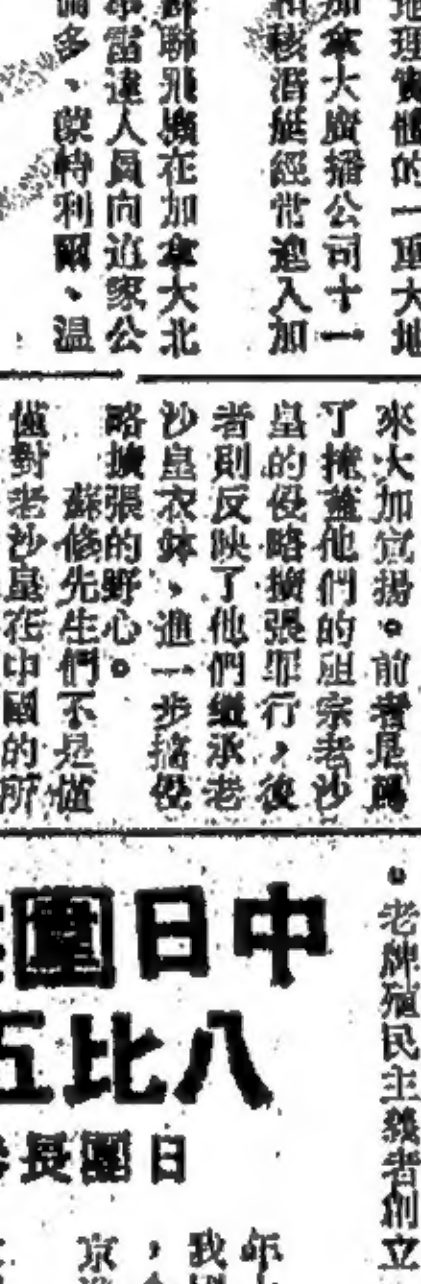 地理實體的一重大地
加拿大廣播公司十一
和核潛艇經常進入加
蘇聯飛機在加拿大北
軍雷達人員向追蹤公
倫多、蒙特利爾、温
來大加宣揚。前者是爲
了掩蓋他們的祖宗老沙
皇的侵略擴張罪行,後
者則反映了他們繼承老
沙皇衣鉢、進一步搞侵
略擴張的野心。
蘇修先生們不是僅
僅對老沙皇在中國的所
。老牌殖民主義者創立
中日圍
八比五
日團長
年
我
,
京